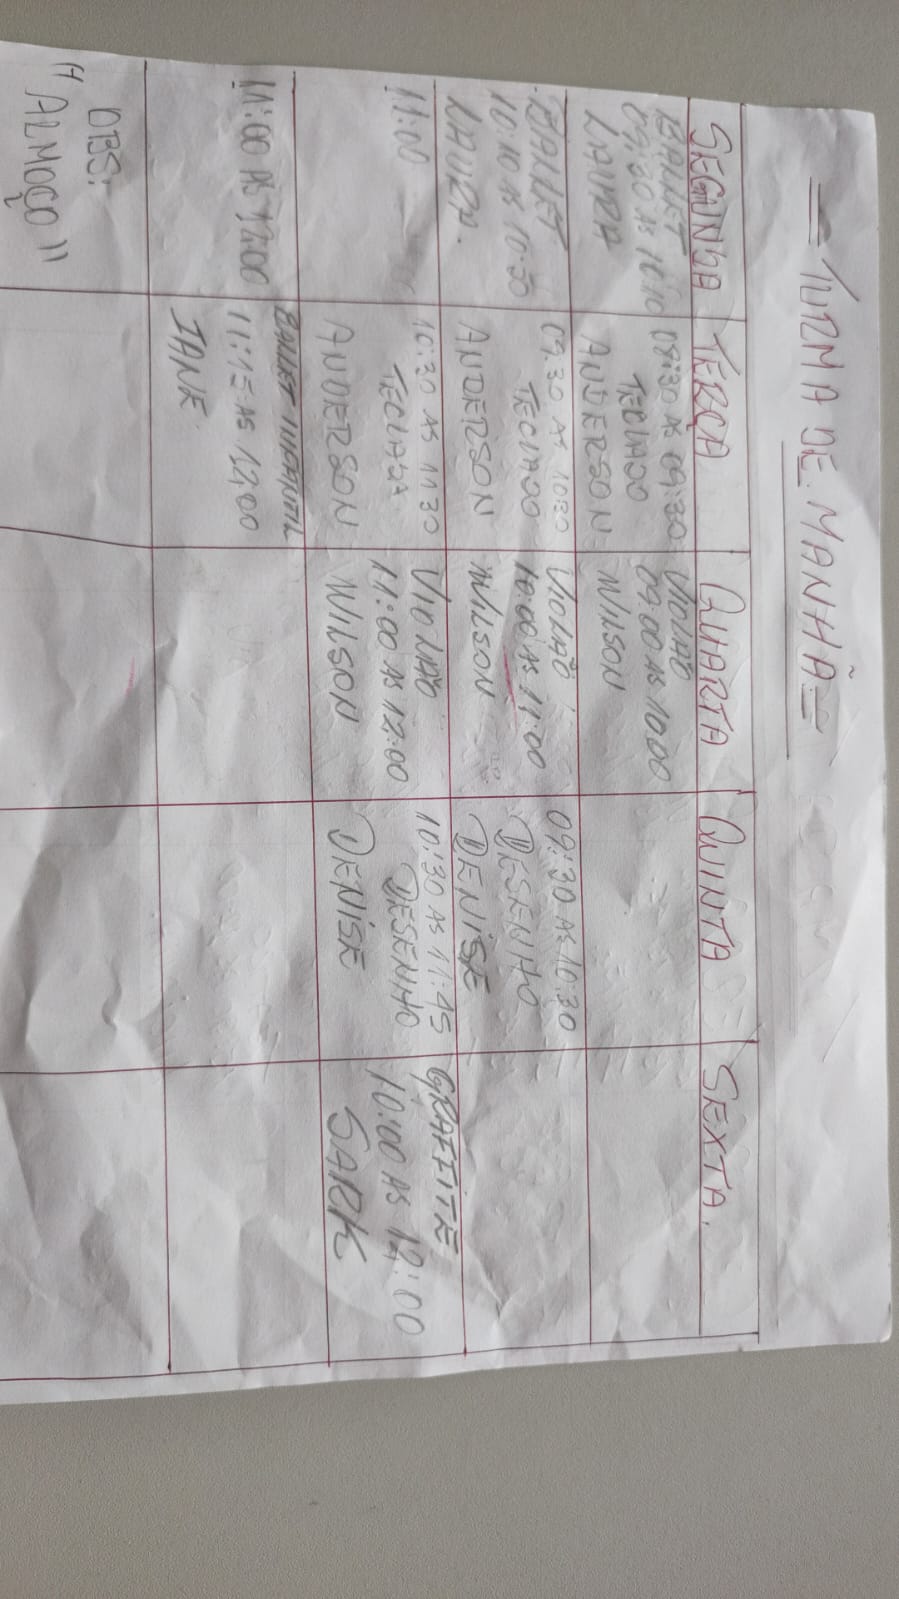 = TURMA DE MANHÃ =
SEGUNDA TERÇA QUARTA QUINTA SEXTA.
BALLET
09:30 AS 10:10
LAURA
08:30 AS 09:30
TECLADO
ANDERSON
VIOLÃO
09:00 AS 10:00
WILSON
BALLET
10:10 AS 10:50
LAURA.
09:30 AS 10:30
TECLADO
ANDERSON
VIOLÃO
10:00 AS 11:00
WILSON
09:30 AS 10:30
DESENHO
DENISE
11:00
10:30 AS 11:30
TECLADO
ANDERSON
VIOLÃO
11:00 AS 12:00
WILSON
10:30 AS 11:45
DESENHO
DENISE
GRAFFITE
10:00 AS 12:00
SARK
11:00 AS 12:00
BALLET INFANTIL
11:15 AS 12:00
IANE
OBS:
"ALMOÇO"